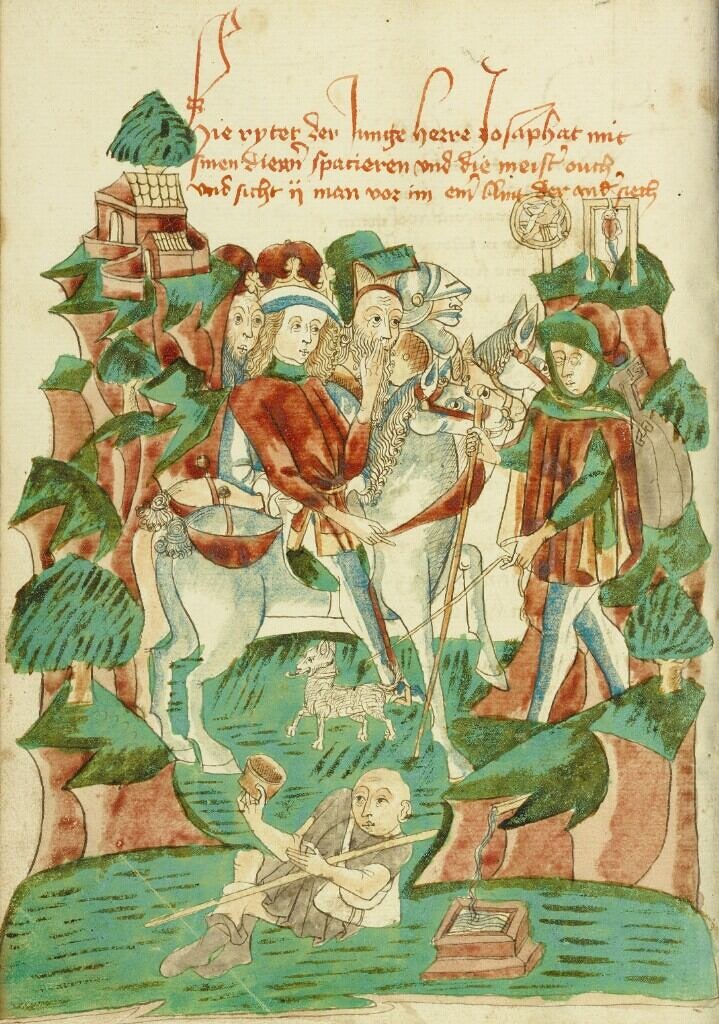 Hie rytet der Junge herre Josaphat mit
sinen diern spacieren vnd die meist ouch
vnd sicht ij man vor im ein blint der ander siech